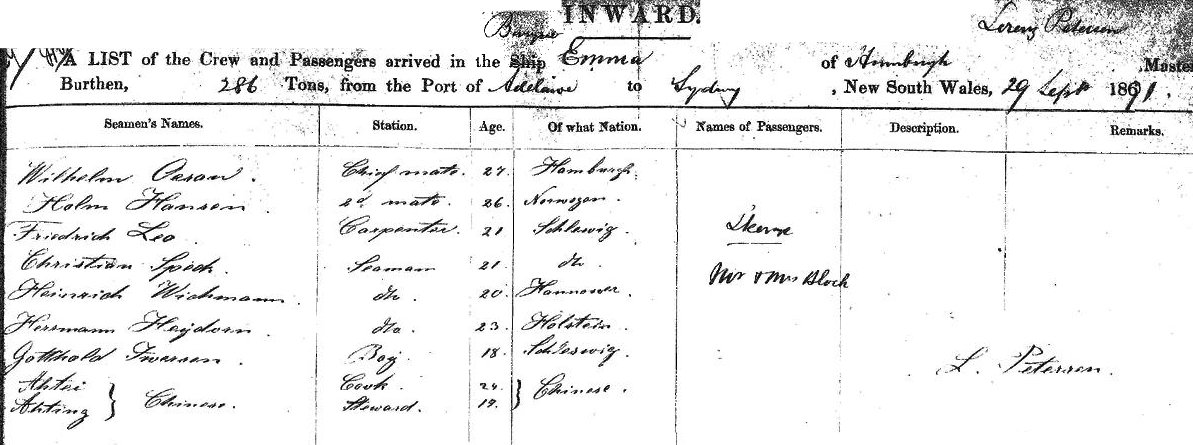 INWARD.
Barque Lorenz Petersen
A LIST of the Crew and Passengers arrived in the Ship Emma of Hamburgh Master
Burthen, 286 Tons, from the Port of Adelaide to Sydney, New South Wales, 29 Sept 1871.
Seamen's Names. Station. Age. Of what Nation. Names of Passengers. Description. Remarks.
Wilhelm Chief mate. 27. Hamburgh.
Holm Hansen. 2d mate. 26. Norwegen.
Friedrich Leo. Carpenter. 21 Schlewig.
Christian Speck. Seaman 21. do.
Mr & Mrs Bloch
Heinrich Wichmann. do. 20. Hannover.
Herrmann Heydorn. do. 23. Holstein.
Gotthold Iwersen. Boy. 18. Schleswig.
L. Petersen.
Ahtei } Chinese. Cook. 24. } Chinese.
Ahting Steward. 17.